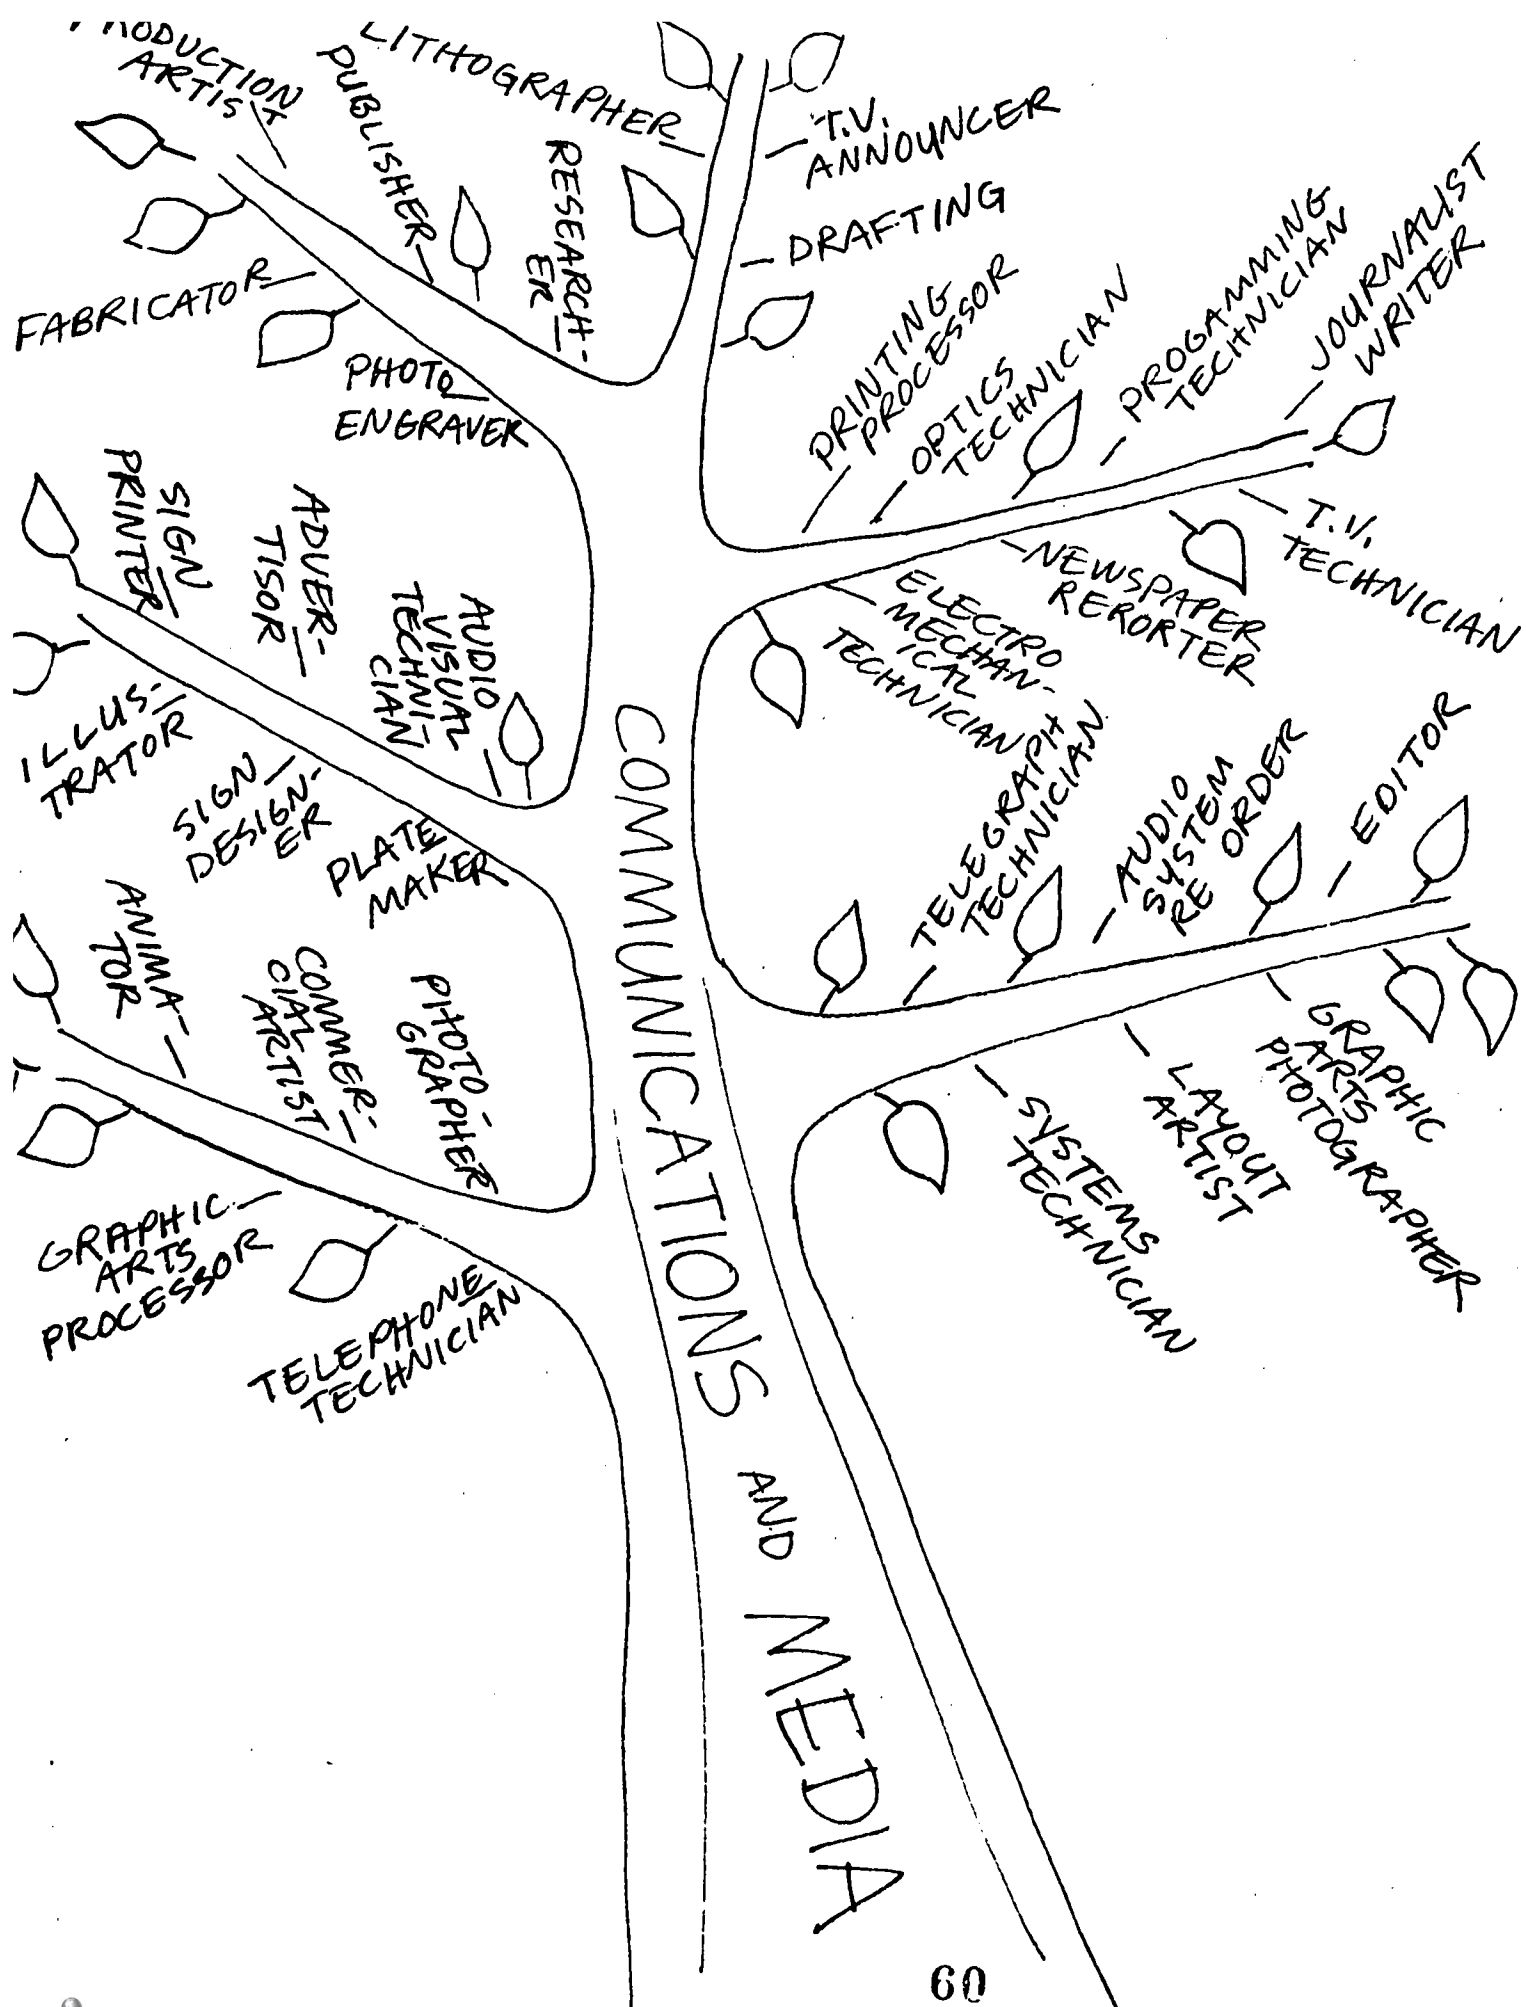 PRODUCTION
ARTIST
PUBLISHER
LITHOGRAPHER
RESEARCH-
ER
T.V.
ANNOUNCER
DRAFTING
FABRICATOR
PHOTO
ENGRAVER
PRINTING
PROCESSOR
OPTICS
TECHNICIAN
PROGAMMING
TECHNICIAN
JOURNALIST
WRITER
T.V.
TECHNICIAN
NEWSPAPER
RERORTER
ELECTRO
MECHAN-
ICAL
TECHNICIAN
SIGN
PRINTER
ADVER-
TISOR
AUDIO
VISUAL
TECHNI-
CIAN
ILLUS-
TRATOR
SIGN
DESIGN-
ER
PLATE
MAKER
TELEGRAPH
TECHNICIAN
AUDIO
SYSTEM
RE ORDER
EDITOR
ANIMA-
TOR
COMMER-
CIAL
ARTIST
PHOTO-
GRAPHER
GRAPHIC
ARTS
PHOTOGRAPHER
LAYOUT
ARTIST
SYSTEMS
TECHNICIAN
GRAPHIC
ARTS
PROCESSOR
TELEPHONE
TECHNICIAN
COMMUNICATIONS
AND
MEDIA
60